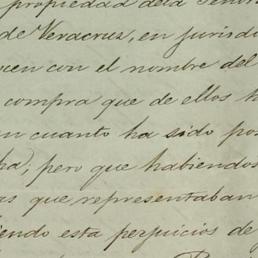 propiedad de la Señor
de Veracruz, en jurisdi
ocen con el nombre del
compra que de ellos h
en cuanto ha sido pos
ha; pero que habiendos
as que representaban
iendo esta perjuicios de